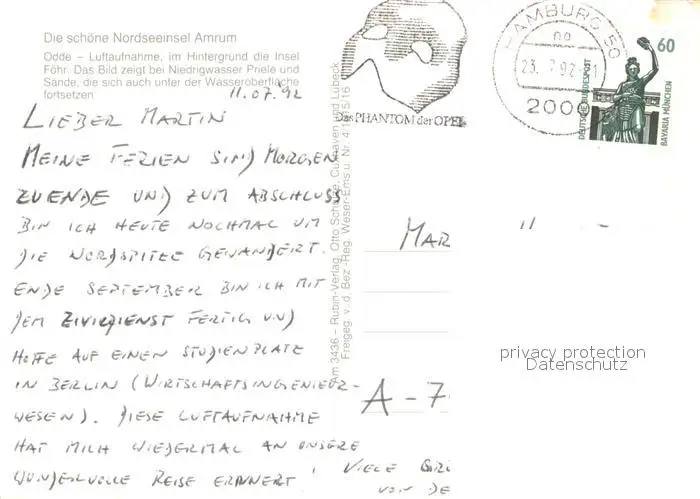 Die schöne Nordseeinsel Amrum
Odde – Luftaufnahme, im Hintergrund die Insel
Föhr. Das Bild zeigt bei Niedrigwasser Priele und
Sände, die sich auch unter der Wasseroberfläche
fortsetzen
11.07.92
LIEBER MARTIN
MEINE FERIEN SIND MORGEN
ZUENDE UND ZUM ABSCHLUSS
BIN ICH HEUTE NOCHMAL UM
DIE NORDSPITZE GEWANDERT.
ENDE SEPTEMBER BIN ICH MIT
DEM ZIVILDIENST FERTIG UND
HOFFE AUF EINEN STUDIENPLATZ
IN BERLIN (WIRTSCHAFTSINGENIEUR-
WESEN). DIESE LUFTAUFNAHME
HAT MICH WIEDERMAL AN UNSERE
WUNDERVOLLE REISE ERINNERT!
VIELE
VON
Am 3436 – Rubin-Verlag, Otto Schulze, Cuxhaven und Lübeck
Freigeg. v. d. Bez.-Reg. Weser-Ems u. Nr.
Das PHANTOM der OPER
HAMBURG 50
23. 7.92
2000
60
DEUTSCHE BUNDESPOST
BAVARIA MÜNCHEN
MAR
A-7
privacy protection
Datenschutz